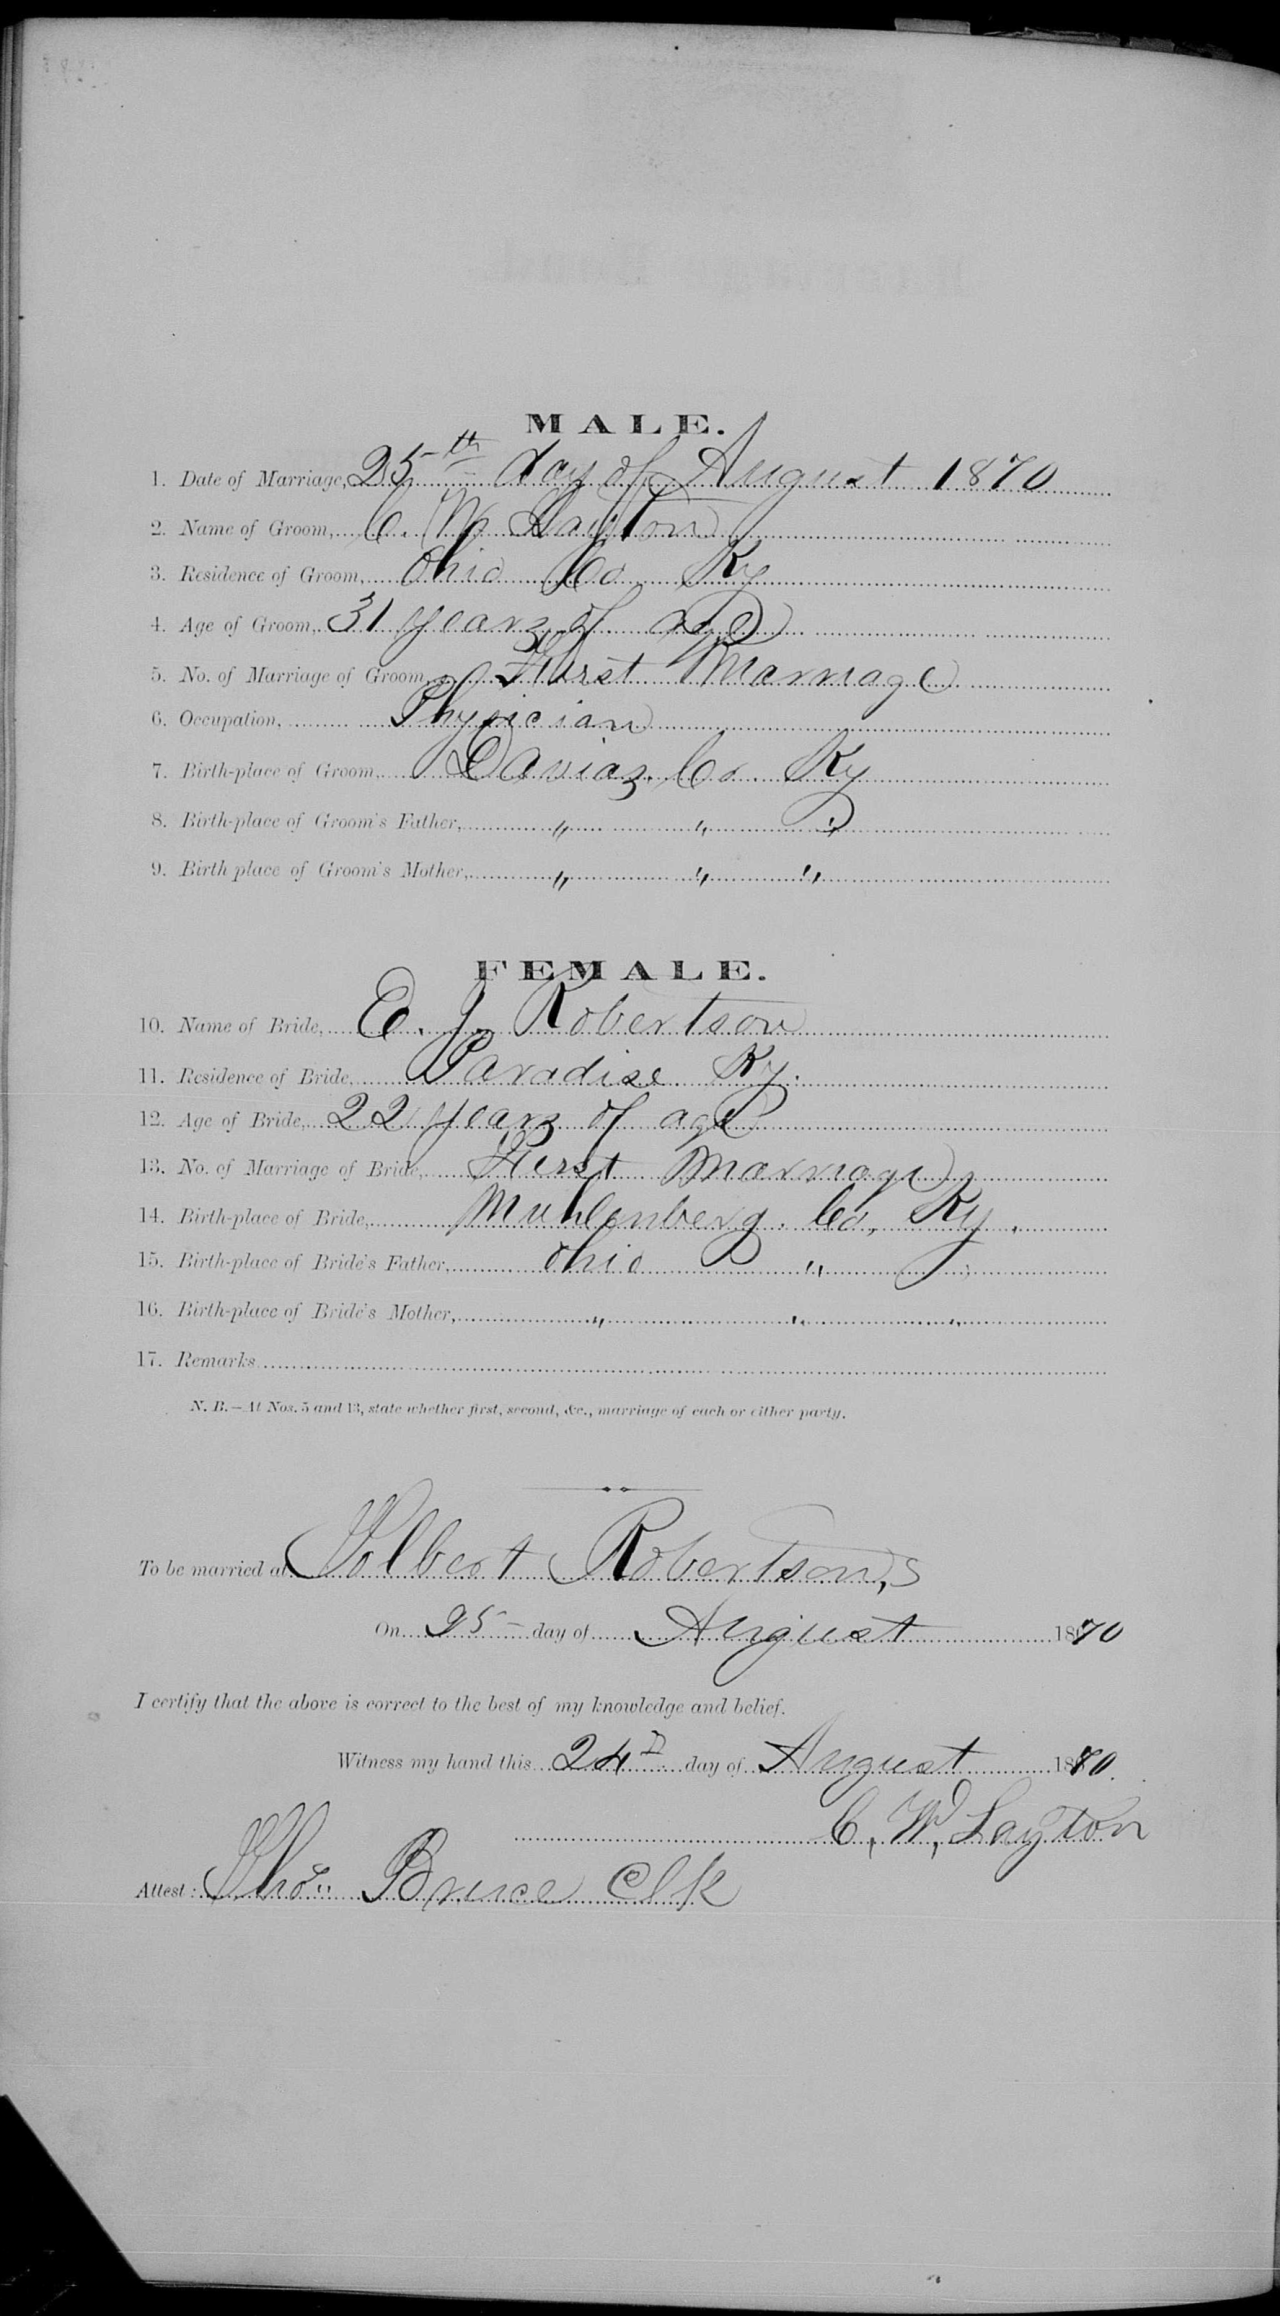 MALE.
1. Date of Marriage, 25th day of August 1870
2. Name of Groom, C. W. Layton
3. Residence of Groom, Ohio Co Ky
4. Age of Groom, 31 years of age
5. No. of Marriage of Groom, First Marriage
6. Occupation, Physician
7. Birth-place of Groom, Daviaz Co Ky
8. Birth-place of Groom's Father, " " "
9. Birth place of Groom's Mother, " " "
FEMALE.
10. Name of Bride, E. J. Robertson
11. Residence of Bride, Paradise Ky.
12. Age of Bride, 22 years of age
13. No. of Marriage of Bride, First Marriage
14. Birth-place of Bride, Muhlenberg. Co, Ky.
15. Birth-place of Bride's Father, Ohio " "
16. Birth-place of Bride's Mother, " " "
17. Remarks
N. B.—At Nos. 5 and 13, state whether first, second, &c., marriage of each or either party.
To be married at Robertson,s
On 25 day of August 1870
I certify that the above is correct to the best of my knowledge and belief.
Witness my hand this 24th day of August 1870.
C. W. Layton
Attest: Thos. Bruce Clk